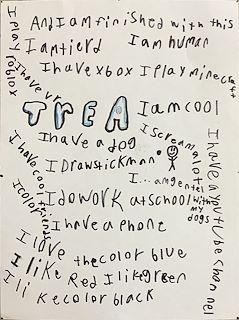 And I am finished with this
I am tierd
I am human
I have xbox
I play minecraft
I play roblox
I have vr
TreA
I am cool
I have a dog
I scream alot
I Draw stickman
I... am gentel with my dogs
I have cool
I color
I do work at school
I have a phone
I love the color blue
I like Red I like green
I li ke color black
I have a youtube channel